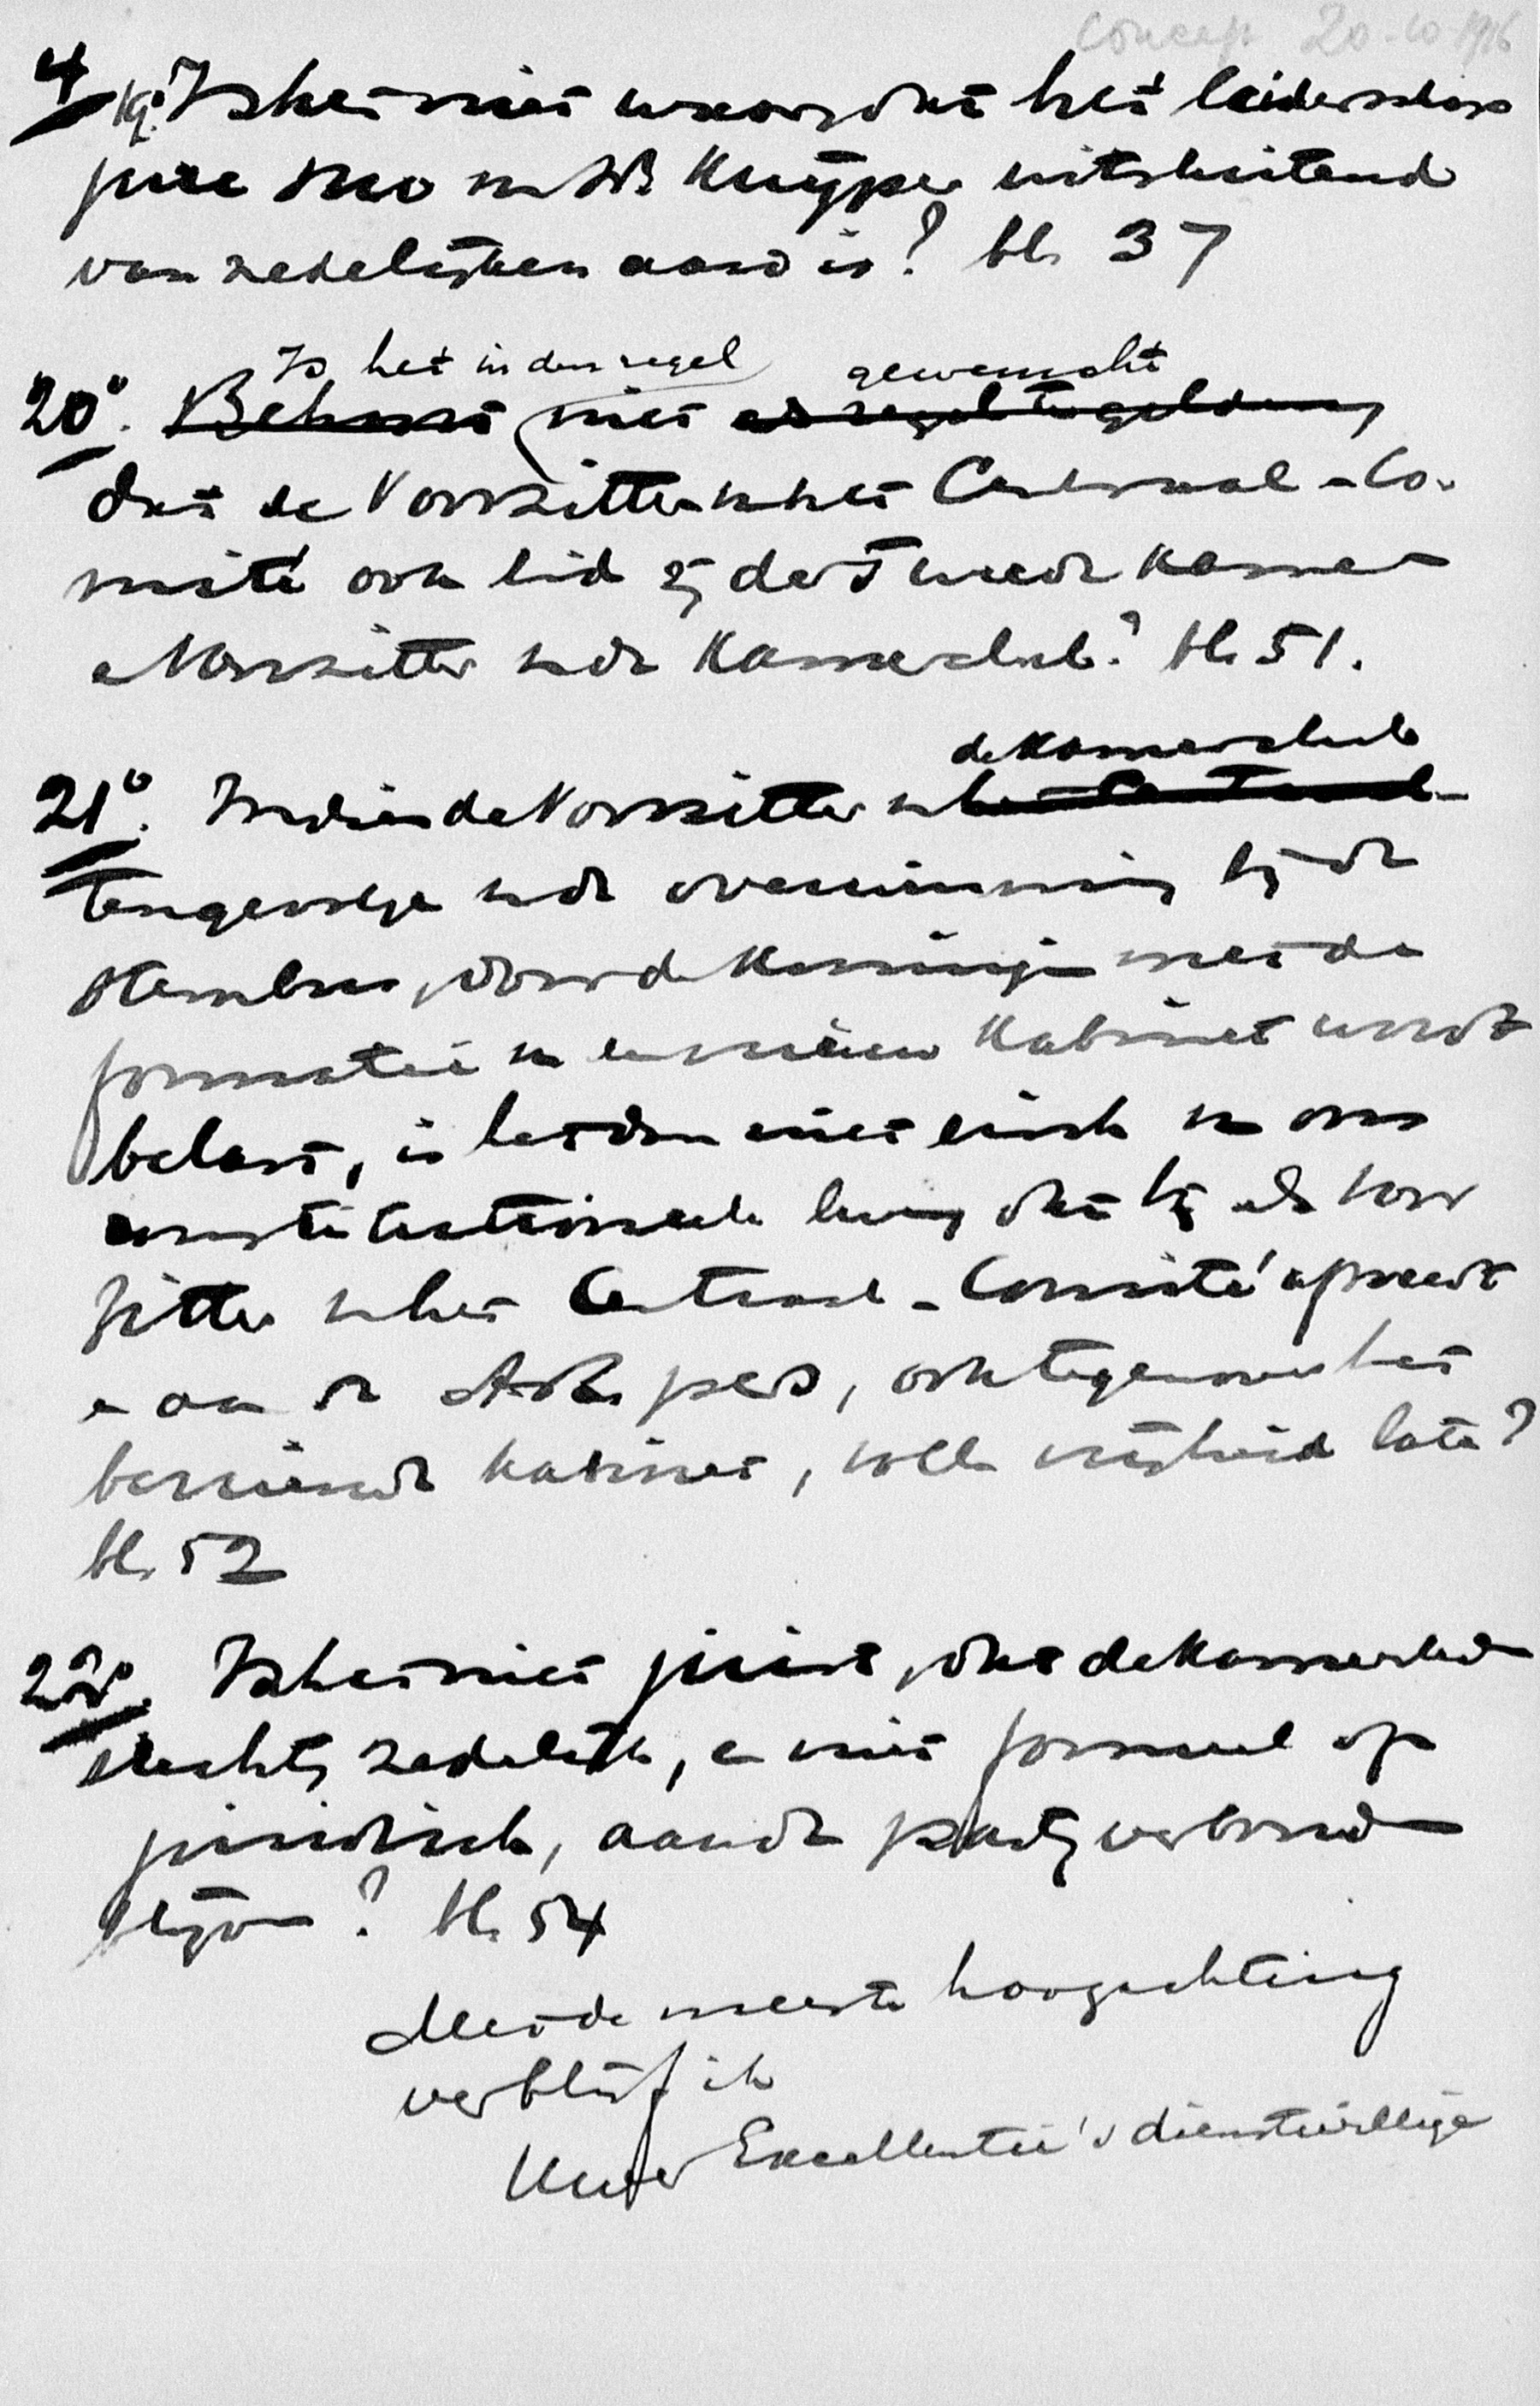 Concept 20-10-1916
4/ 19° Is het niet waar, dat het leiderschap
van Dr Kuyper uitsluitend
van zedelijken aard is? bl. 37
Is het in den regel gewenscht
20°. Behoort niet als regel te gelden,
dat de Voorzitter v. het Centraal-Co-
mité ook lid zij der Tweede Kamer
en Voorzitter v. de Kamerclub? bl. 51.
de Kamerclub
21°. Indien de Voorzitter v. het Centraal-
tengevolge v. de overwinning bij de
stembus, door de Koningin met de
formatie v. een nieuw Kabinet wordt
belast, is het dan niet eisch v. ons
constitutioneele leven, dat hij als voor
zitter v. het Centraal-Comité aftreedt
en aan de A.R. pers, ook tegenover het
bevriende kabinet, volle vrijheid late?
bl. 52
22°. Is het niet juist, dat de Kamerleden
slechts zedelijk, en niet formeel of
juridisch, aan de partij verbonden
blijven? bl. 54
Met de meeste hoogachting
verblijf ik
Uwer Excellentie's dienstwillige